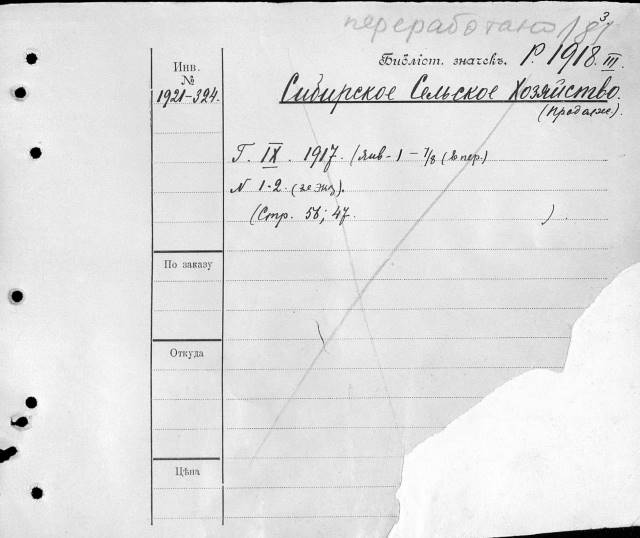 переработано
3
Библіст. значекъ. Р. 1918. III.
Инв.
№
1921-324.
Сибирское Сельское Хозяйство.
(Продолж).
Г. IX. 1917. (Янв-1 - 7/8 (в пер.)
N 1-2.
(Стр. 56; 47. ).
По заказу
Откуда
Цѣна